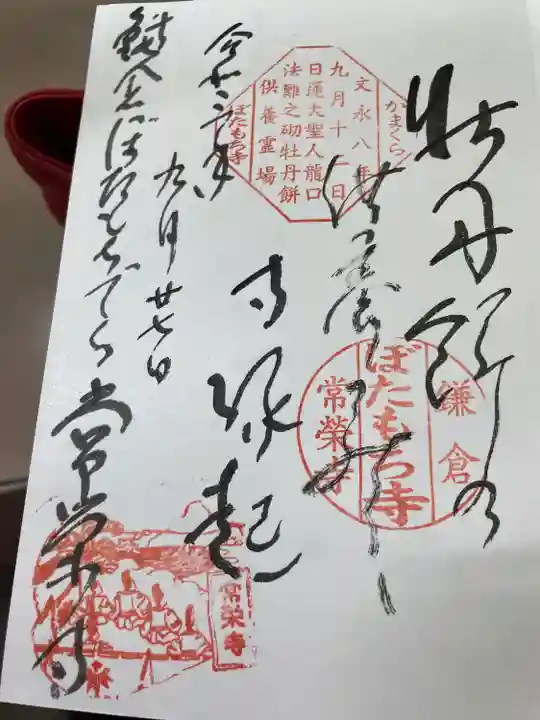 牡丹餅の
供養
寺縁起
令和二年
九月廿七日
鎌倉ぼたもちでら常栄寺
かまくら
文永八年
九月十二日
日蓮大聖人龍口
法難之砌牡丹餅
供養霊場
ぼたもち寺
鎌倉
ぼたもち寺
常榮寺
常榮寺